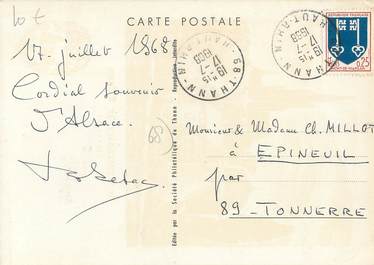 10 €
CARTE POSTALE
17 juillet 1968
Cordial souvenir
d'Alsace.
68
Edité par la Société Philatélique de Thann - Reproduction interdite
68-THANN
HAUT-RHIN
19 H15
17-7
1968
68-THANN
HAUT-RHIN
19 H15
17-7
1968
REPUBLIQUE FRANÇAISE
0,25
Monsieur & Madame Ch. MILLOT
à
EPINEUIL
par
89-TONNERRE